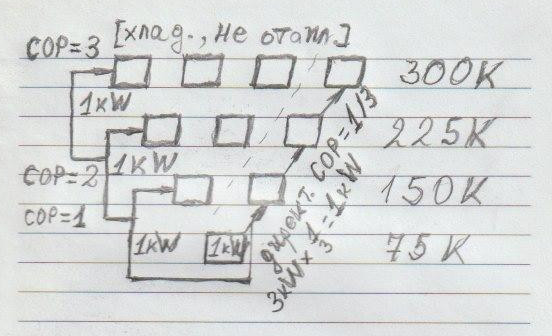 COP=3 [хлад., не отапл.]
1kW 300K
1kW 225K
COP=2 150K
COP=1
1kW 1kW 75K
директ. COP=1/3
3kW × 1/3 = 1kW